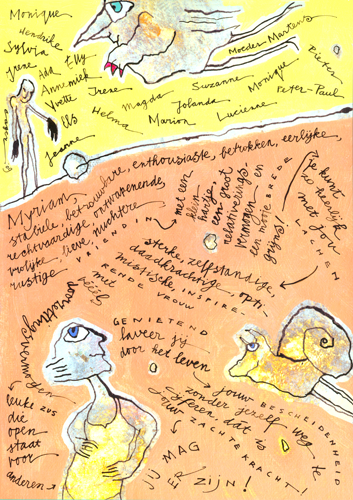 Monique
Hendrike
Sylvia
Irene
Ada
Elly
Annemiek
Yvette
Irese
Els
Helma
Magda
Suzanne
Moeder-Martens
Monique
Pieter
Peter-Paul
Jolanda
Marion
Lucienne
Joanne
Myriam,
stabiele betrouwbare, enthousiaste, betrokken, eerlijke
rechtvaardige ontwapenende,
vrolijke lieve, nuchtere
rustige VRIENDIN
met een
klein
hartje
en groot
relativerings
vermogen en
een nötie BREDE
grijns!
Je kunt
zo heerlijk
met jou
LACHEN
sterke, zelfstandige,
daadkrachtige, opti,
mistische INSPIRE-
RENDE VROUW
met
véél
doorzettings
vermogen
GENIETEND
laveer jij
door het leven
leuke zus
die
open
staat
voor
anderen
jouw BESCHEIDENHEID
zonder jezelf weg te
cijferen dat is
jouw ZACHTE KRACHT!
JIJ MAG
ER ZIJN!